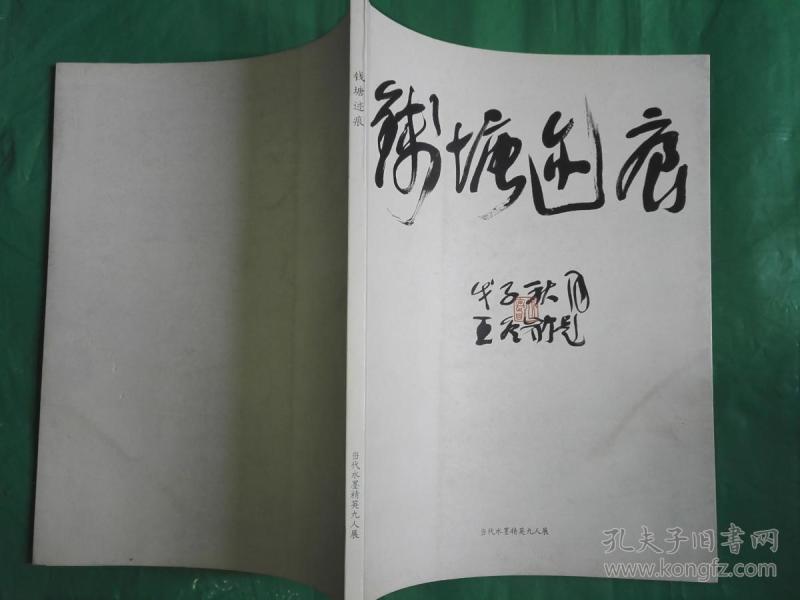 钱塘迹痕
戊子秋月
王冬龄题
当代水墨精英九人展
钱塘迹痕
当代水墨精英九人展
孔夫子旧书网
www.kongfz.com